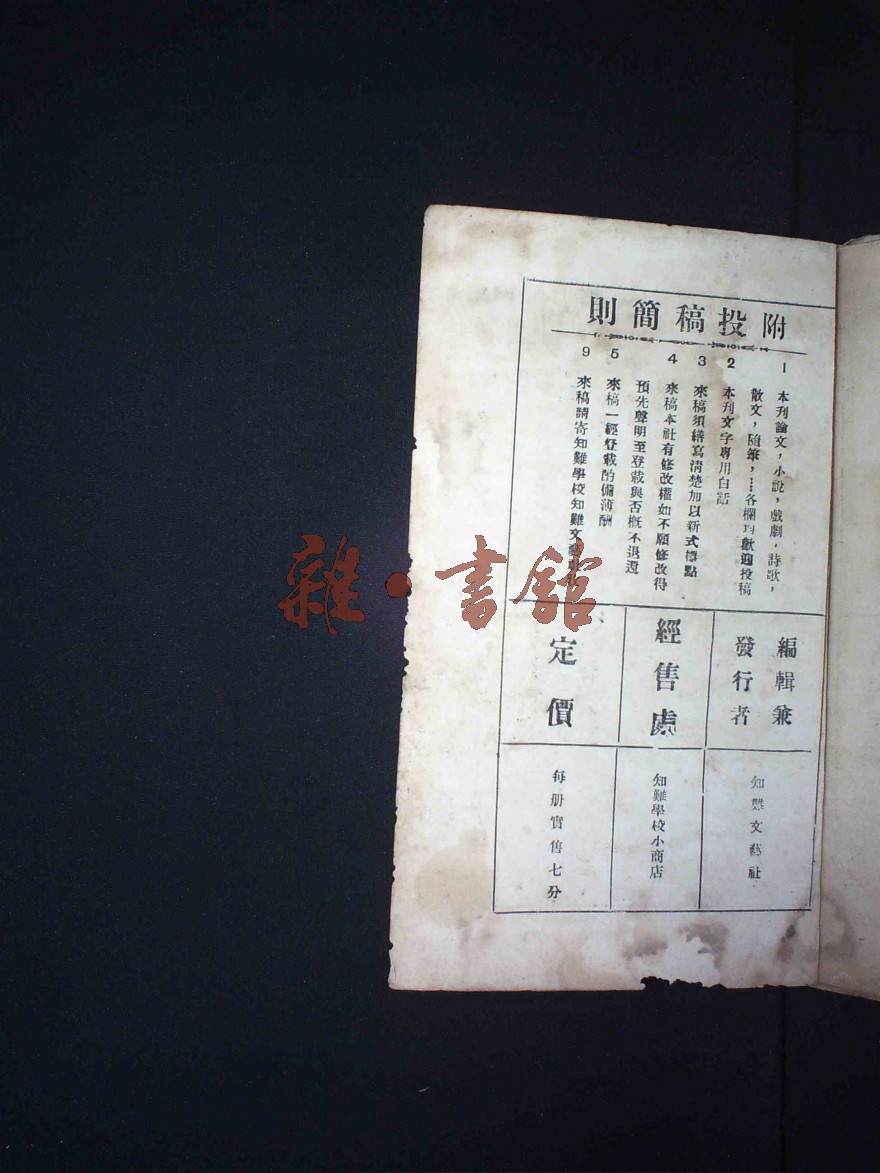 附投稿簡則
1 本刊論文，小說，戲劇，詩歌，
散文，隨筆，…各欄均歡迎投稿
2 本刊文字專用白話
3 來稿須繕寫清楚加以新式標點
4 來稿本社有修改權如不願修改得
預先聲明至登載與否概不退還
5 來稿一經登載酌備薄酬
9 來稿請寄知難學校知難文藝
編輯兼
發行者
知難文藝社
經售處
知難學校小商店
定價
每册實售七分
雜·書館